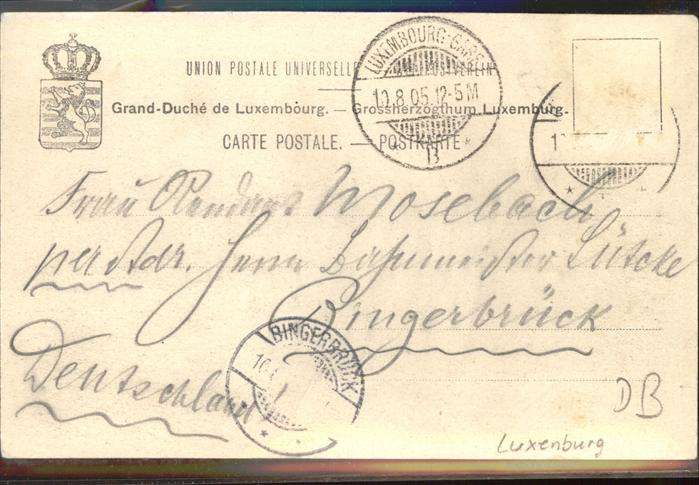 UNION POSTALE UNIVERSELLE
Grand-Duché de Luxembourg. — Grossherzogthum Luxemburg.
CARTE POSTALE. — POSTKARTE
LUXEMBOURG-GARE
10.8.05.12-5M
B
Frau Rendant Mosebach
per Adr. Herrn Bahnmeister Lütcke
Bingerbrück
Deutschland!
BINGERBRÜCK
DB
Luxenburg